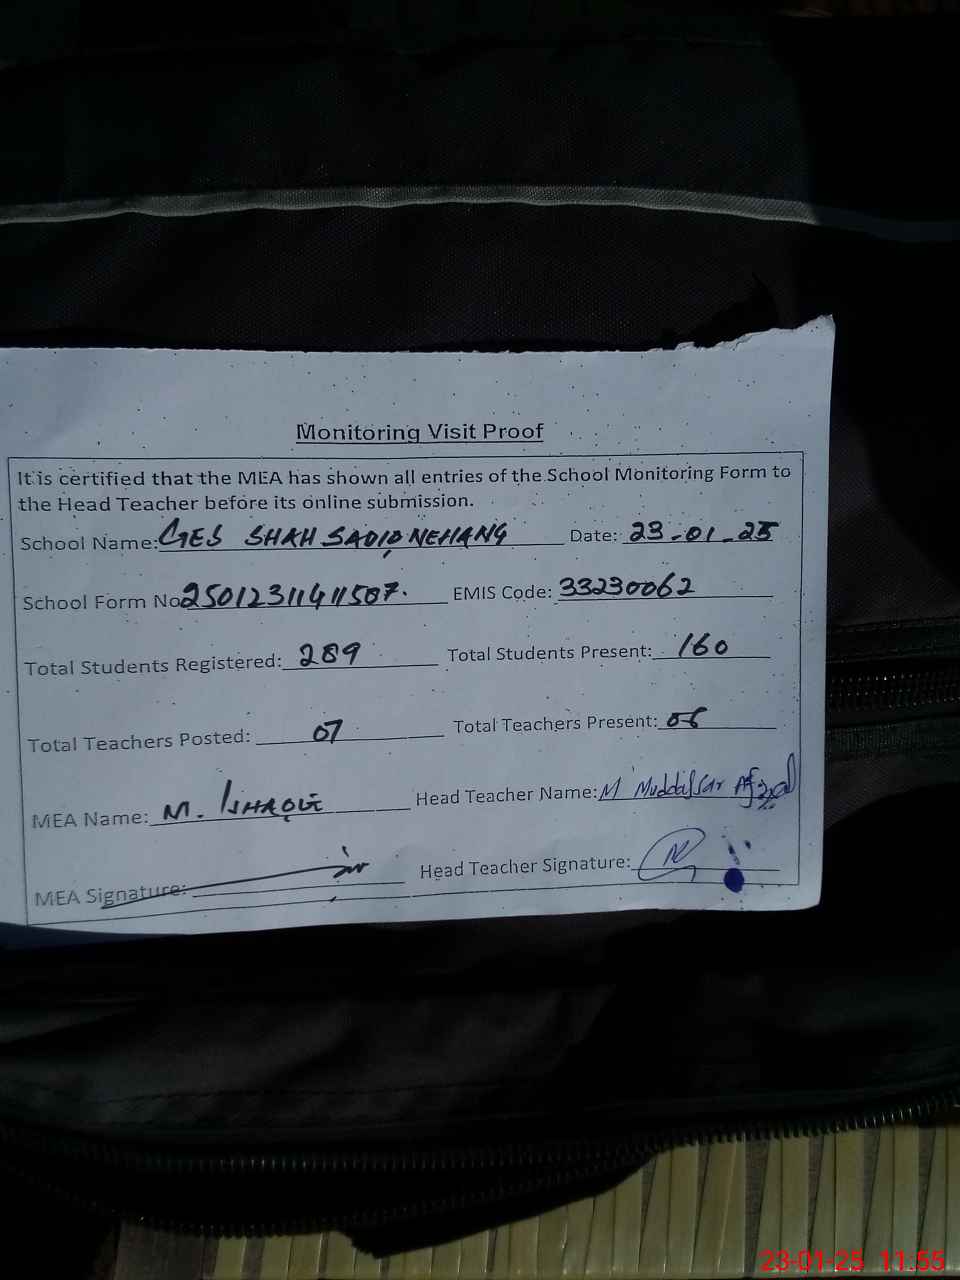 Monitoring Visit Proof
It is certified that the MEA has shown all entries of the School Monitoring Form to
the Head Teacher before its online submission.
School Name: GES SHAH SADIQ NEHANG Date: 23-01-25
School Form No 25012311411507. EMIS Code: 33230062
Total Students Registered: 289 Total Students Present: 160
Total Teachers Posted: 07 Total Teachers Present: 06
MEA Name: M. ISHAQUE Head Teacher Name: M Muddassar Afzal
MEA Signature: Head Teacher Signature:
23-01-25 11:55